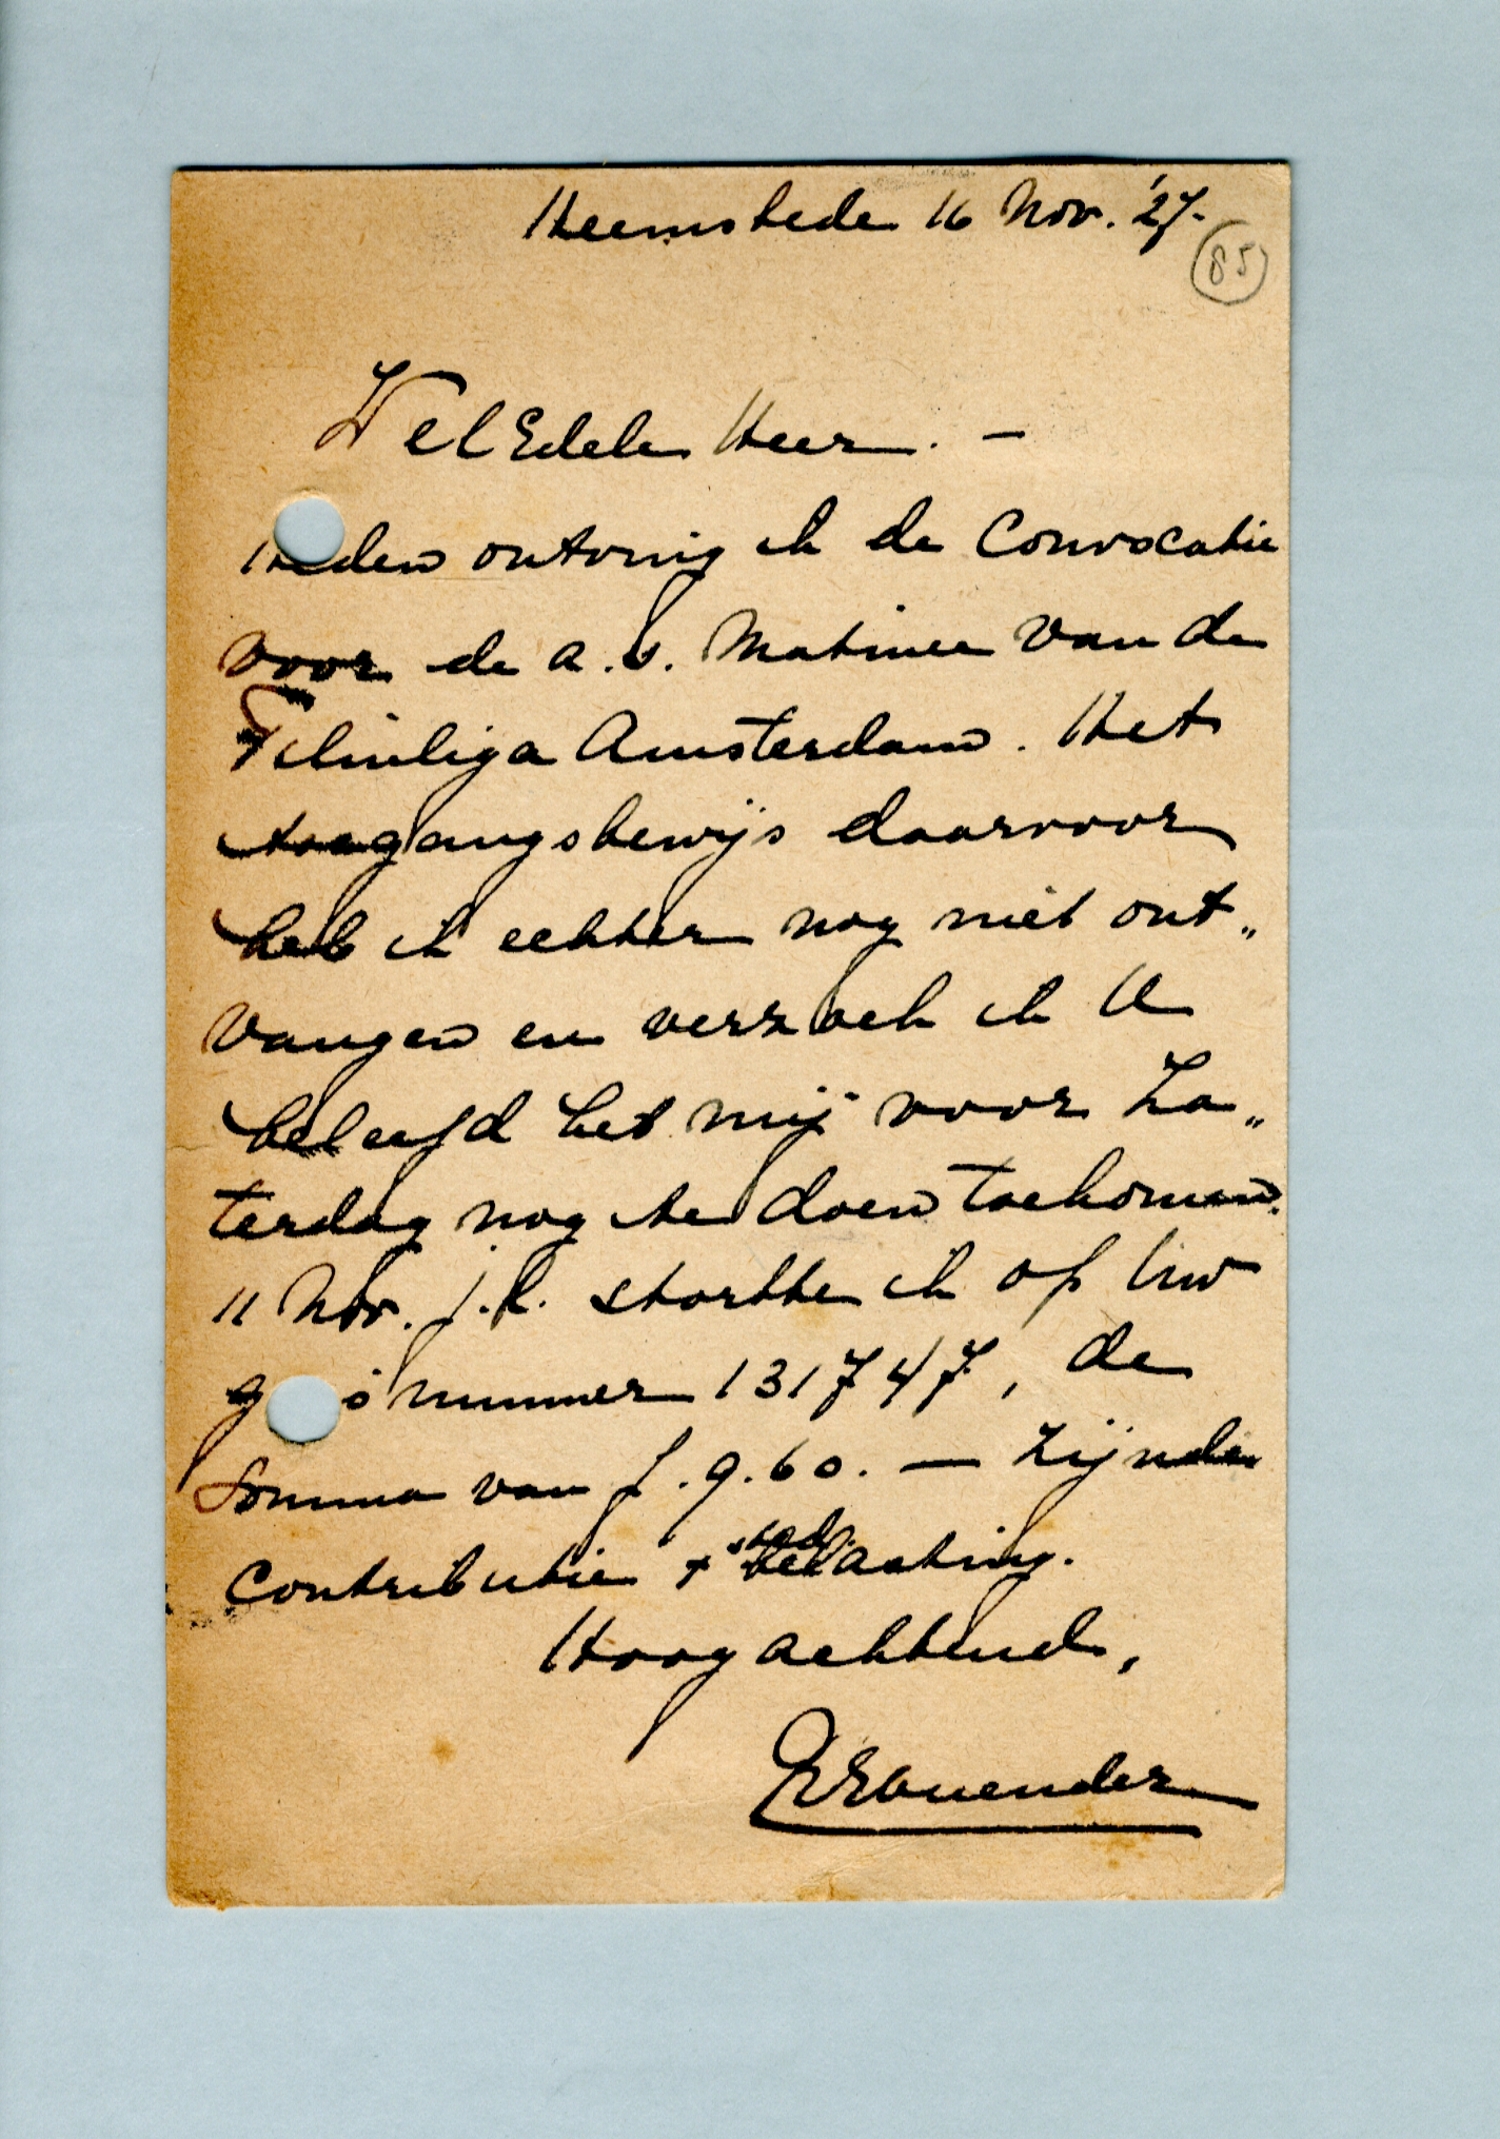 Heemstede 16 Nov. '27.
85
WelEdele Heer. —
Heden ontving ik de Convocatie
voor de a.s. Matinee van de
Filmliga Amsterdam. Het
toegangsbewijs daarvoor
heb ik echter nog niet ont„
vangen en verzoek ik U
beleefd het mij voor Za„
terdag nog te doen toekomen.
11 Nov. j.l. stortte ik op Uw
giro nummer 131747, de
Somma van f. 9.60. — zijnde
Contributie + sted. belasting.
Hoogachtend,